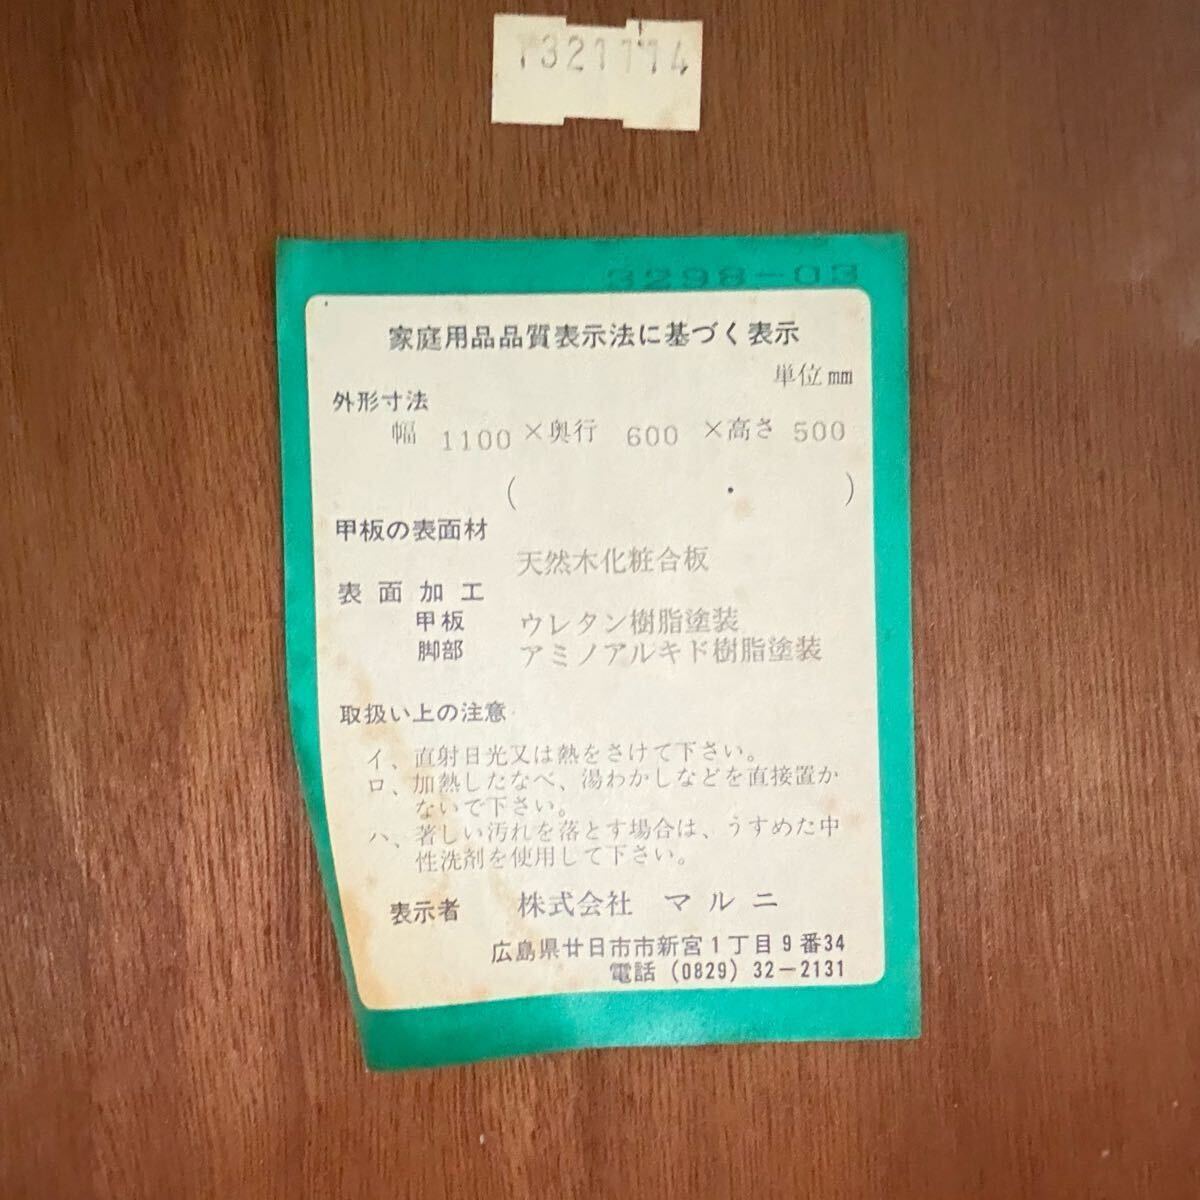 1321114
3298-03
家庭用品品質表示法に基づく表示
単位mm
外形寸法
幅 1100 ×奥行 600 ×高さ 500
( ・ )
甲板の表面材
天然木化粧合板
表面加工
甲板 ウレタン樹脂塗装
脚部 アミノアルキド樹脂塗装
取扱い上の注意
イ、直射日光又は熱をさけて下さい。
ロ、加熱したなべ、湯わかしなどを直接置か
ないで下さい。
ハ、著しい汚れを落とす場合は、うすめた中
性洗剤を使用して下さい。
表示者 株式会社 マルニ
広島県廿日市市新宮1丁目9番34
電話(0829)32-2131